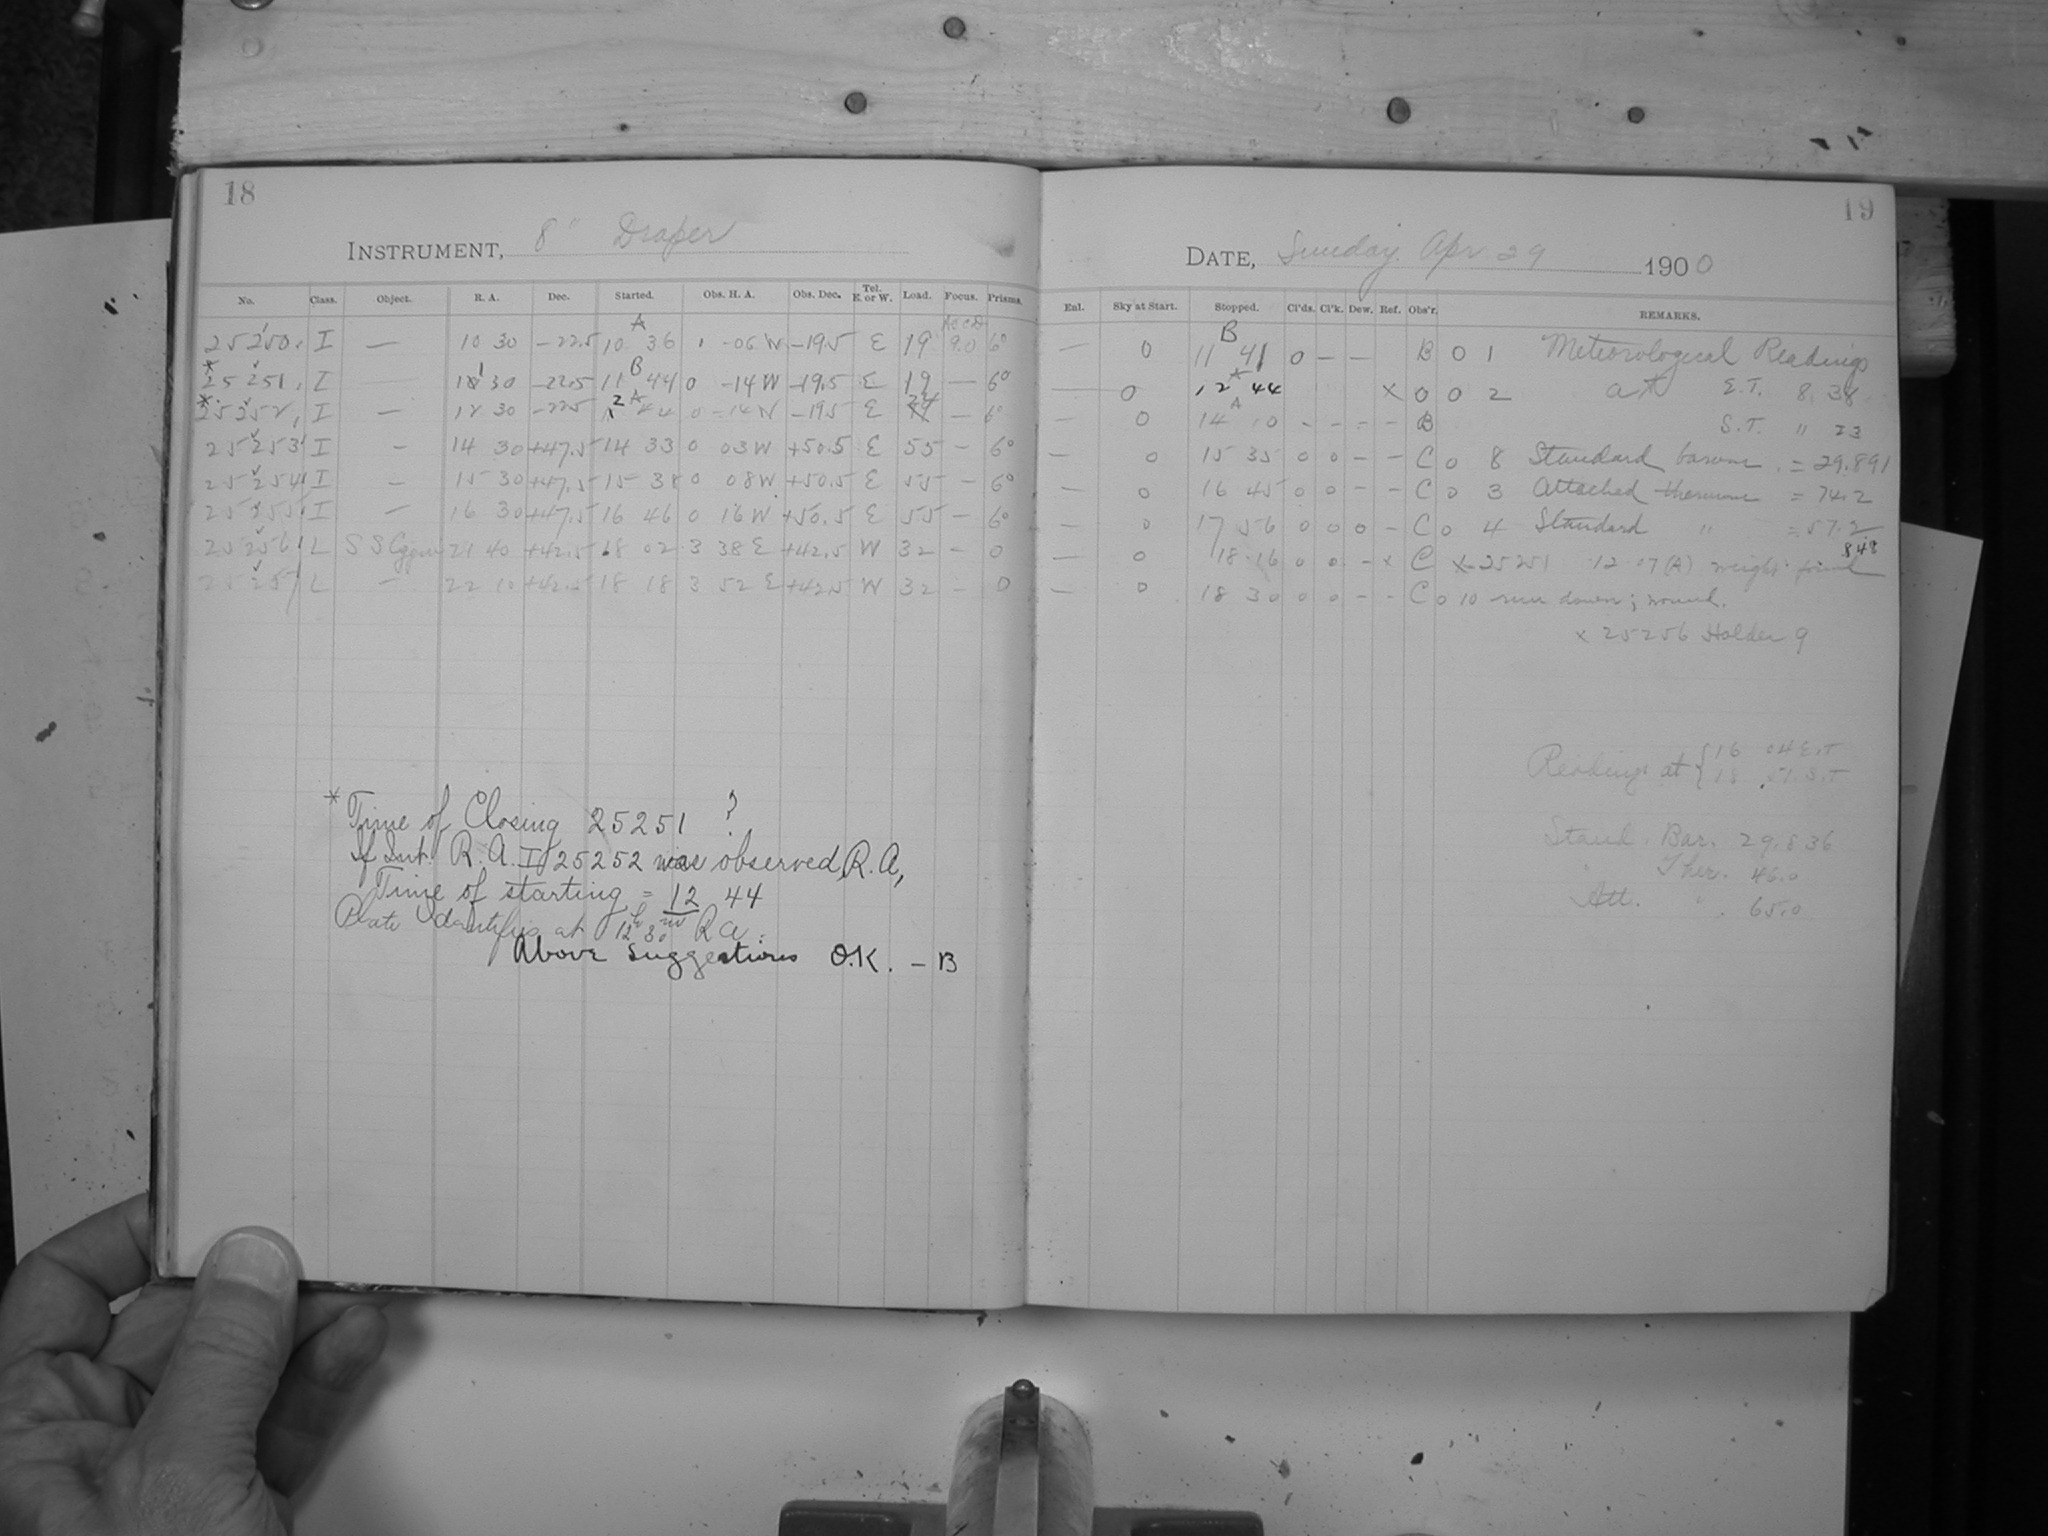 18
INSTRUMENT, 8" Draper
No. Class. Object. R. A. Dec. Started. Obs. H. A. Obs. Dec. Tel. E. or W. Load. Focus. Prisms.
25250 I — 10 30 -22.5 A 10 36 -06 W -19.5 E 19 9.0 6°
* 25251 I 11 30 -22.5 B 11 44 0 -14 W -19.5 E 19 — 6°
* 25252 I — 12 30 -22.5 A 12 44 0 -14 W -19.5 E 24 — 6°
25253 I — 14 30 +47.5 14 33 0 03 W +50.5 E 55 — 6°
25254 I — 15 30 +47.5 15 38 0 08 W +50.5 E 55 — 6°
25255 I — 16 30 +47.5 16 46 0 16 W +50.5 E 55 — 6°
25256 L S S Cygni 21 40 +42.5 18 02 3 38 E +42.5 W 32 — 0
25257 L — 22 10 +42.5 18 18 3 52 E +42.5 W 32 — 0
* Time of Closing 25251 ?
If Int. R. A. I 25252 was observed R. A,
Time of starting = 12 44
Plate identifies at 12h 30m R a.
Above suggestions O.K. — B
19
DATE, Sunday Apr 29 1900
Enl. Sky at Start. Stopped. Cl'ds. Cl'k. Dew. Ref. Obs'r. REMARKS.
— 0 B 11 41 0 — — B 0 1 Meteorological Readings
— 0 A 12 44 x 0 0 2 at E.T. 8.38
— 0 A 14 10 - - - - B S.T. " 23
— 0 15 35 0 0 - - C 0 8 Standard barom. = 29.891
— 0 16 45 0 0 - - C 0 3 Attached thermom = 74.2
— 0 17 56 0 0 0 - C 0 4 Standard " = 57.2
848
— 0 18 16 0 0 - x C x 25251 12 07 (A) weight found
— 0 18 30 0 0 - - C 0 10 run down; wound.
x 25256 Holder 9
Readings at { 16 04 E.T
18 51 S.T
Stand. Bar. 29.836
" Ther. 46.0
Att. " 65.0